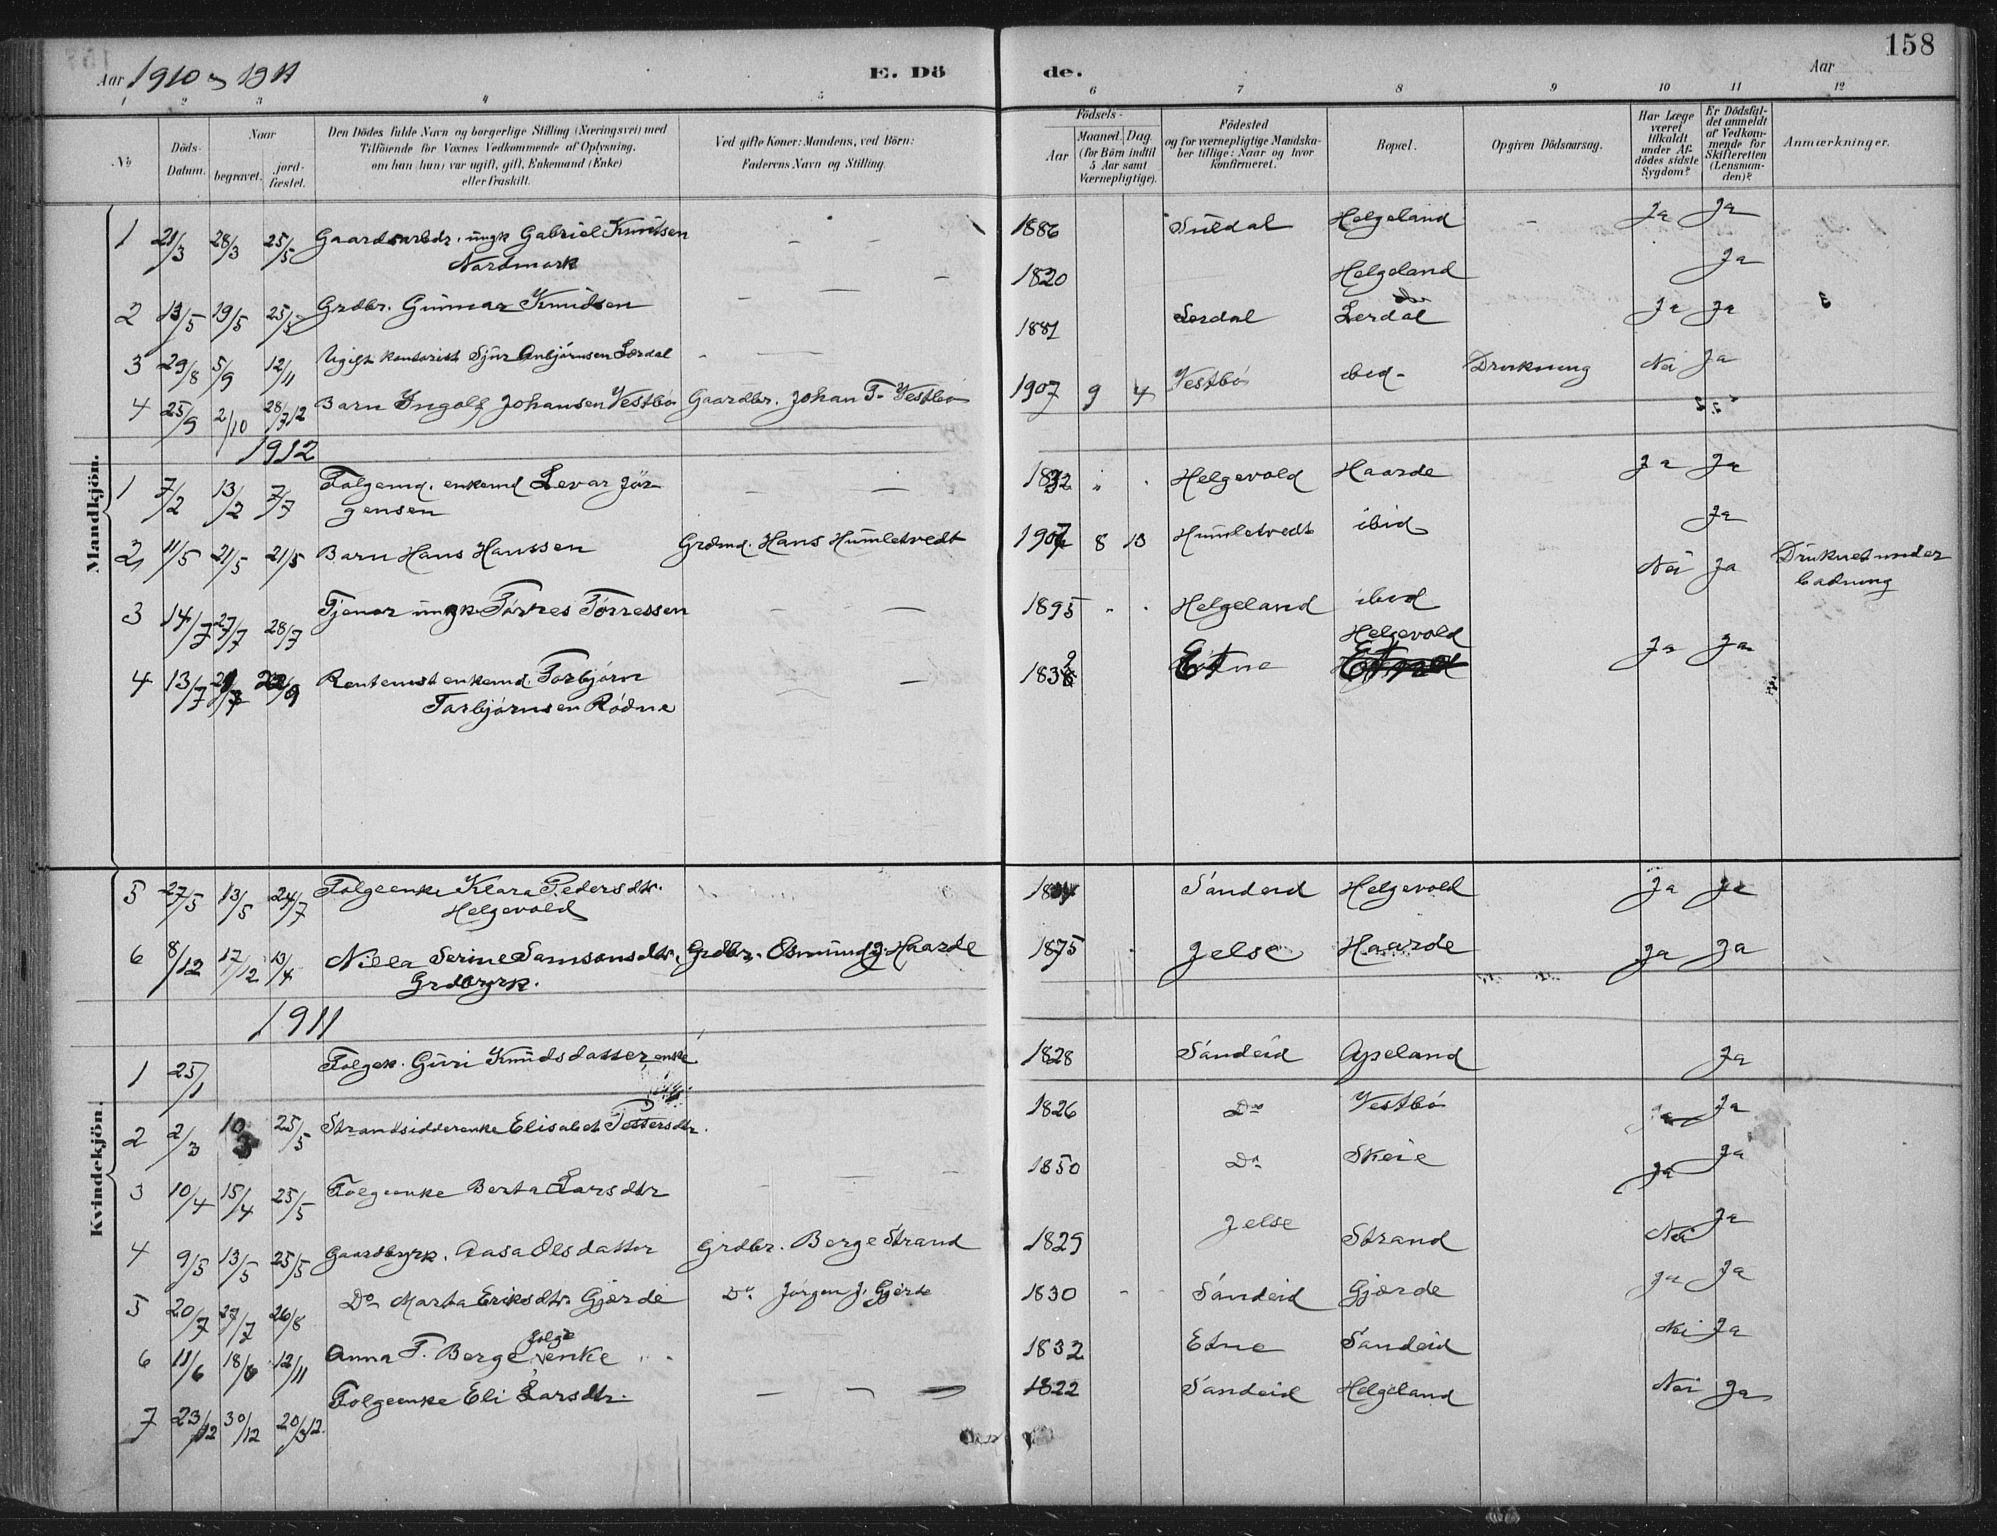 158
Aar 1910 – 1911 E. Dö de. Aar
1 2 3 4 5 6 7 8 9 10 11 12
No
Döds-Datum.
Naar
begravet.
jord-fæstet.
Den Dödes fulde Navn og borgerlige Stilling (Næringsvei) med
Tilföiende for Voxnes Vedkommende af Oplysning,
om han (hun) var ugift, gift, Enkemand (Enke)
eller fraskilt.
Ved gifte Koner: Mandens, ved Börn:
Faderens Navn og Stilling.
Födsels-
Aar
Maaned. Dag.
(for Börn indtil
5 Aar samt
Værnepligtige).
Födested
og for værnepligtige Mandska-
ber tillige: Naar og hvor
konfirmeret.
Bopæl.
Opgiven Dödsaarsag.
Har Læge
været
tilkaldt
under Af-
dödes sidste
Sygdom?
Er Dödsfal-
det anmeldt
af Vedkom-
mende for
Skifteretten
(Lensman-
den)?
Anmærkninger.
Mandkjön.
1 21/3 28/3 25/5 Gaardsarbdr. ungk Gabriel Knutsen — — 1886 Suldal Helgeland - Ja Ja
Nordmark
2 13/5 19/5 25/5 Grdbr. Gunnar Knudsen — — 1820 Helgeland Ja
3 29/8 5/9 12/11 Ugift kontorist Sjur Anbjørnsen Lærdal - — 1881 Lerdal Lerdal Ja Ja
4 25/9 2/10 28/7 12 Barn Ingolf Johansen Vestbø Gaardbr. Johan T. Vestbø 1907 9 4 Vestbø ibid- Drukning Nei Ja
1912
1 7/2 13/2 7/7 Folgemd. enkemd Levar Jør — — 1832 " Helgevold Haarde Ja Ja
gensen
2 11/5 21/5 21/5 Barn Hans Hanssen Grdmd. Hans Humletvedt 1907 8 13 Humletvedt ibid Ja
3 14/7 27/7 28/7 Tjener ungk Tørres Tørressen — — 1895 " Helgeland ibid Nei Ja Druknet under
badning
4 13/7 Rentemst enkemd Torbjørn — 1839 Etne Helgevold Ja Ja
Torbjørnsen Rødne
Kvindekjön.
5 27/5 13/5 24/7 Folgeenke Klara Pedersdtr. Sandeid Helgevold Ja Ja
Helgevold
6 8/12 17/12 13/4 Nilla Serine Samsonsdtr. Grdbr. Osmund J. Haarde 1875 Jelse Haarde Ja Ja
Grdbrrk.
1911
1 25/1 Folgek. Guri Knudsdatter, enke 1828 Sandeid Apeland Ja
2 2/3 10/3 25/5 Strandsidderenke Elisabet Pettersdtr. 1826 Do Vestbø Ja Ja
3 10/4 15/4 25/5 Folgeenke Berta Larsdtr — — 1850 Do Skeie Ja Ja
4 9/5 13/5 25/5 Gaardbrrk. Aasa Olsdatter Grdbr. Berge Strand 1829 Jelse Strand Nei Ja
5 20/7 27/7 26/8 Do Marta Eriksdtr Gjærde Do Jørgen J. Gjerde 1830 - Sandeid Gjærde Ja Ja
6 11/6 18/6 12/11 Anna T. Berge folge enke 1832 Etne Sandeid Nei Ja
7 23/12 30/12 20/3 12. Folgeenke Eli Larsdtr. — — 1822 Sandeid Helgeland Nei Ja